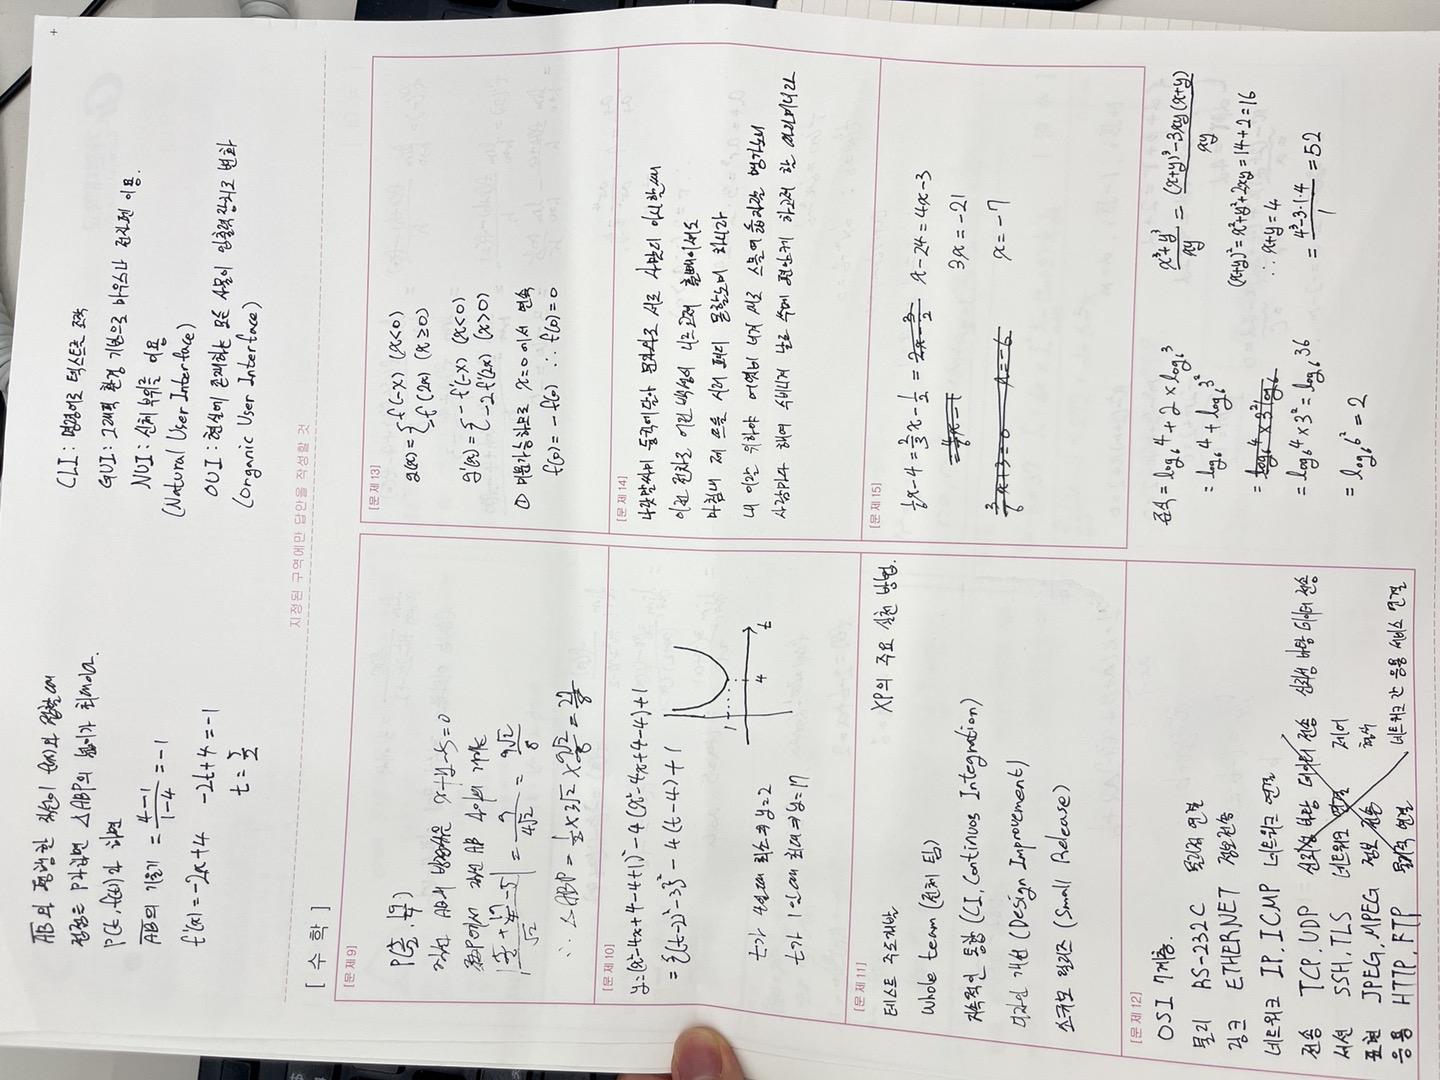 AB와 평행한 직선이 f(x)와 접할 때
접점을 P라하면 △ABP의 넓이가 최대이다.
P(t, f(t))라 하면
AB의 기울기 = 4-1/1-4 = -1
f'(x) = -2x+4 -2t+4 = -1
t = 5/2
CLI : 명령어로 텍스트로 조작
GUI : 그래픽 환경 기반으로 마우스나 전자펜 이용.
NUI : 신체 부위를 이용
(Natural User Interface)
OUI : 현실에 존재하는 모든 사물이 입출력장치로 변화
(Organic User Interface)
지정된 구역에만 답안을 작성할 것
[ 수 학 ]
[문제9]
P(5/2, 19/4)
직선 AB의 방정식은 x+y-5=0
점P에서 직선 AB 사이의 거리는
|5/2 + 19/4 - 5|/√2 = 9/4√2 = 9√2/8
∴ △ABP = 1/2 × 3√2 × 9√2/8 = 27/8
[문제10]
y = (x²-4x+4-4+1)² - 4(x²-4x+4-4)+1
= {(t-2)²-3}² - 4(t-4)+1
1
4
t
t가 4일때 최소값 y=2
t가 1일때 최대값 y=17
[문제11]
테스트 주도개발 XP의 주요 실천 방법.
Whole team (전체 팀)
지속적인 통합 (CI, Continuos Integration)
디자인 개선 (Design Improvement)
소규모 릴리즈 (Small Release)
[문제12]
OSI 7계층.
물리 RS-232C 물리적 연결
링크 ETHERNET 정보전송
네트워크 IP, ICMP 네트워크 연결
전송 TCP, UDP 신뢰성 바탕 데이터 전송 신뢰성 바탕 데이터 전송
세션 SSH, TLS 네트워크 연결 제어
표현 JPEG, MPEG 정보 전송
응용 HTTP, FTP 물리적 연결 네트워크 간 응용 서비스 연결
[문제13]
g(x) = { f(-x) (x<0)
-f(2x) (x≥0)
g'(x) = { -f'(-x) (x<0)
-2f'(2x) (x>0)
① 미분가능하므로 x=0에서 연속
f(0) = -f(0) ∴ f(0)=0
[문제14]
나랏말싸미 듕귁에달아 문자와로 서로 사맛디 아니할쌔
이런 전차로 어린 백성이 니르고져 홀배이셔도
마침내 제 뜨들 시러 펴디 몯할노미 하니라
내 이랄 위하야 어엿비 너겨 새로 스믈여듧자랄 맹가노니
사람마다 해여 수비니겨 날로 쑤메 편안케 하고져 할 따라미니라
[문제15]
1/6x - 4 = 2/3x - 1/2 = 2x - 3/2 x - 24 = 4x - 3
3x = -21
x = -7
준식 = log₆4 + 2 × log₆3
= log₆4 + log₆3²
= log₆4 × 3²log₆
= log₆4×3² = log₆36
= log₆6² = 2
x³+y³/xy = (x+y)³-3xy(x+y)/xy
(x+y)² = x²+y²+2xy = 14+2 = 16
∴ x+y = 4
= 4³-3·1·4/1 = 52